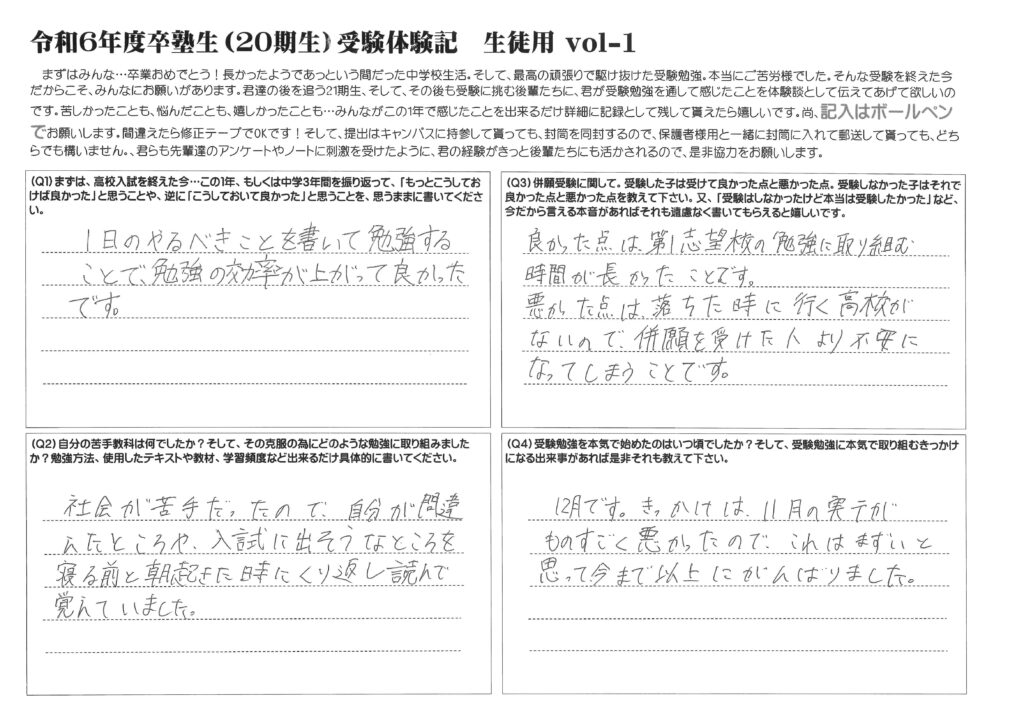 令和6年度卒塾生（20期生）受験体験記　生徒用 vol-1
まずはみんな…卒業おめでとう！長かったようであっという間だった中学校生活。そして、最高の頑張りで駆け抜けた受験勉強。本当にご苦労様でした。そんな受験を終えた今
だからこそ、みんなにお願いがあります。君達の後を追う21期生、そして、その後も受験に挑む後輩たちに、君が受験勉強を通して感じたことを体験談として伝えてあげて欲しいの
です。苦しかったことも、悩んだことも、嬉しかったことも…みんながこの1年で感じたことを出来るだけ詳細に記録として残して貰えたら嬉しいです。尚、記入はボールペン
でお願いします。間違えたら修正テープでOKです！そして、提出はキャンパスに持参して貰っても、封筒を同封するので、保護者様用と一緒に封筒に入れて郵送して貰っても、どち
らでも構いません。、君らも先輩達のアンケートやノートに刺激を受けたように、君の経験がきっと後輩たちにも活かされるので、是非協力をお願いします。
（Q1）まずは、高校入試を終えた今…この1年、もしくは中学3年間を振り返って、「もっとこうしてお
けば良かった」と思うことや、逆に「こうしておいて良かった」と思うことを、思うままに書いてくださ
い。
1日のやるべきことを書いて勉強する
ことで、勉強の効率が上がって良かった
です。
（Q3）併願受験に関して。受験した子は受けて良かった点と悪かった点。受験しなかった子はそれで
良かった点と悪かった点を教えて下さい。又、「受験はしなかったけど本当は受験したかった」など、
今だから言える本音があればそれも遠慮なく書いてもらえると嬉しいです。
良かった点は、第1志望校の勉強に取り組む
時間が長かったことです。
悪かった点は、落ちた時に行く高校が
ないので、併願を受けた人より不安に
なってしまうことです。
（Q2）自分の苦手教科は何でしたか？そして、その克服の為にどのような勉強に取り組みました
か？勉強方法、使用したテキストや教材、学習頻度など出来るだけ具体的に書いてください。
社会が苦手だったので、自分が間違
えたところや、入試に出そうなところを
寝る前と朝起きた時にくり返し読んで
覚えていました。
（Q4）受験勉強を本気で始めたのはいつ頃でしたか？そして、受験勉強に本気で取り組むきっかけ
になる出来事があれば是非それも教えて下さい。
12月です。きっかけは、11月の実テが
ものすごく悪かったので、これはまずいと
思って今まで以上にがんばりました。